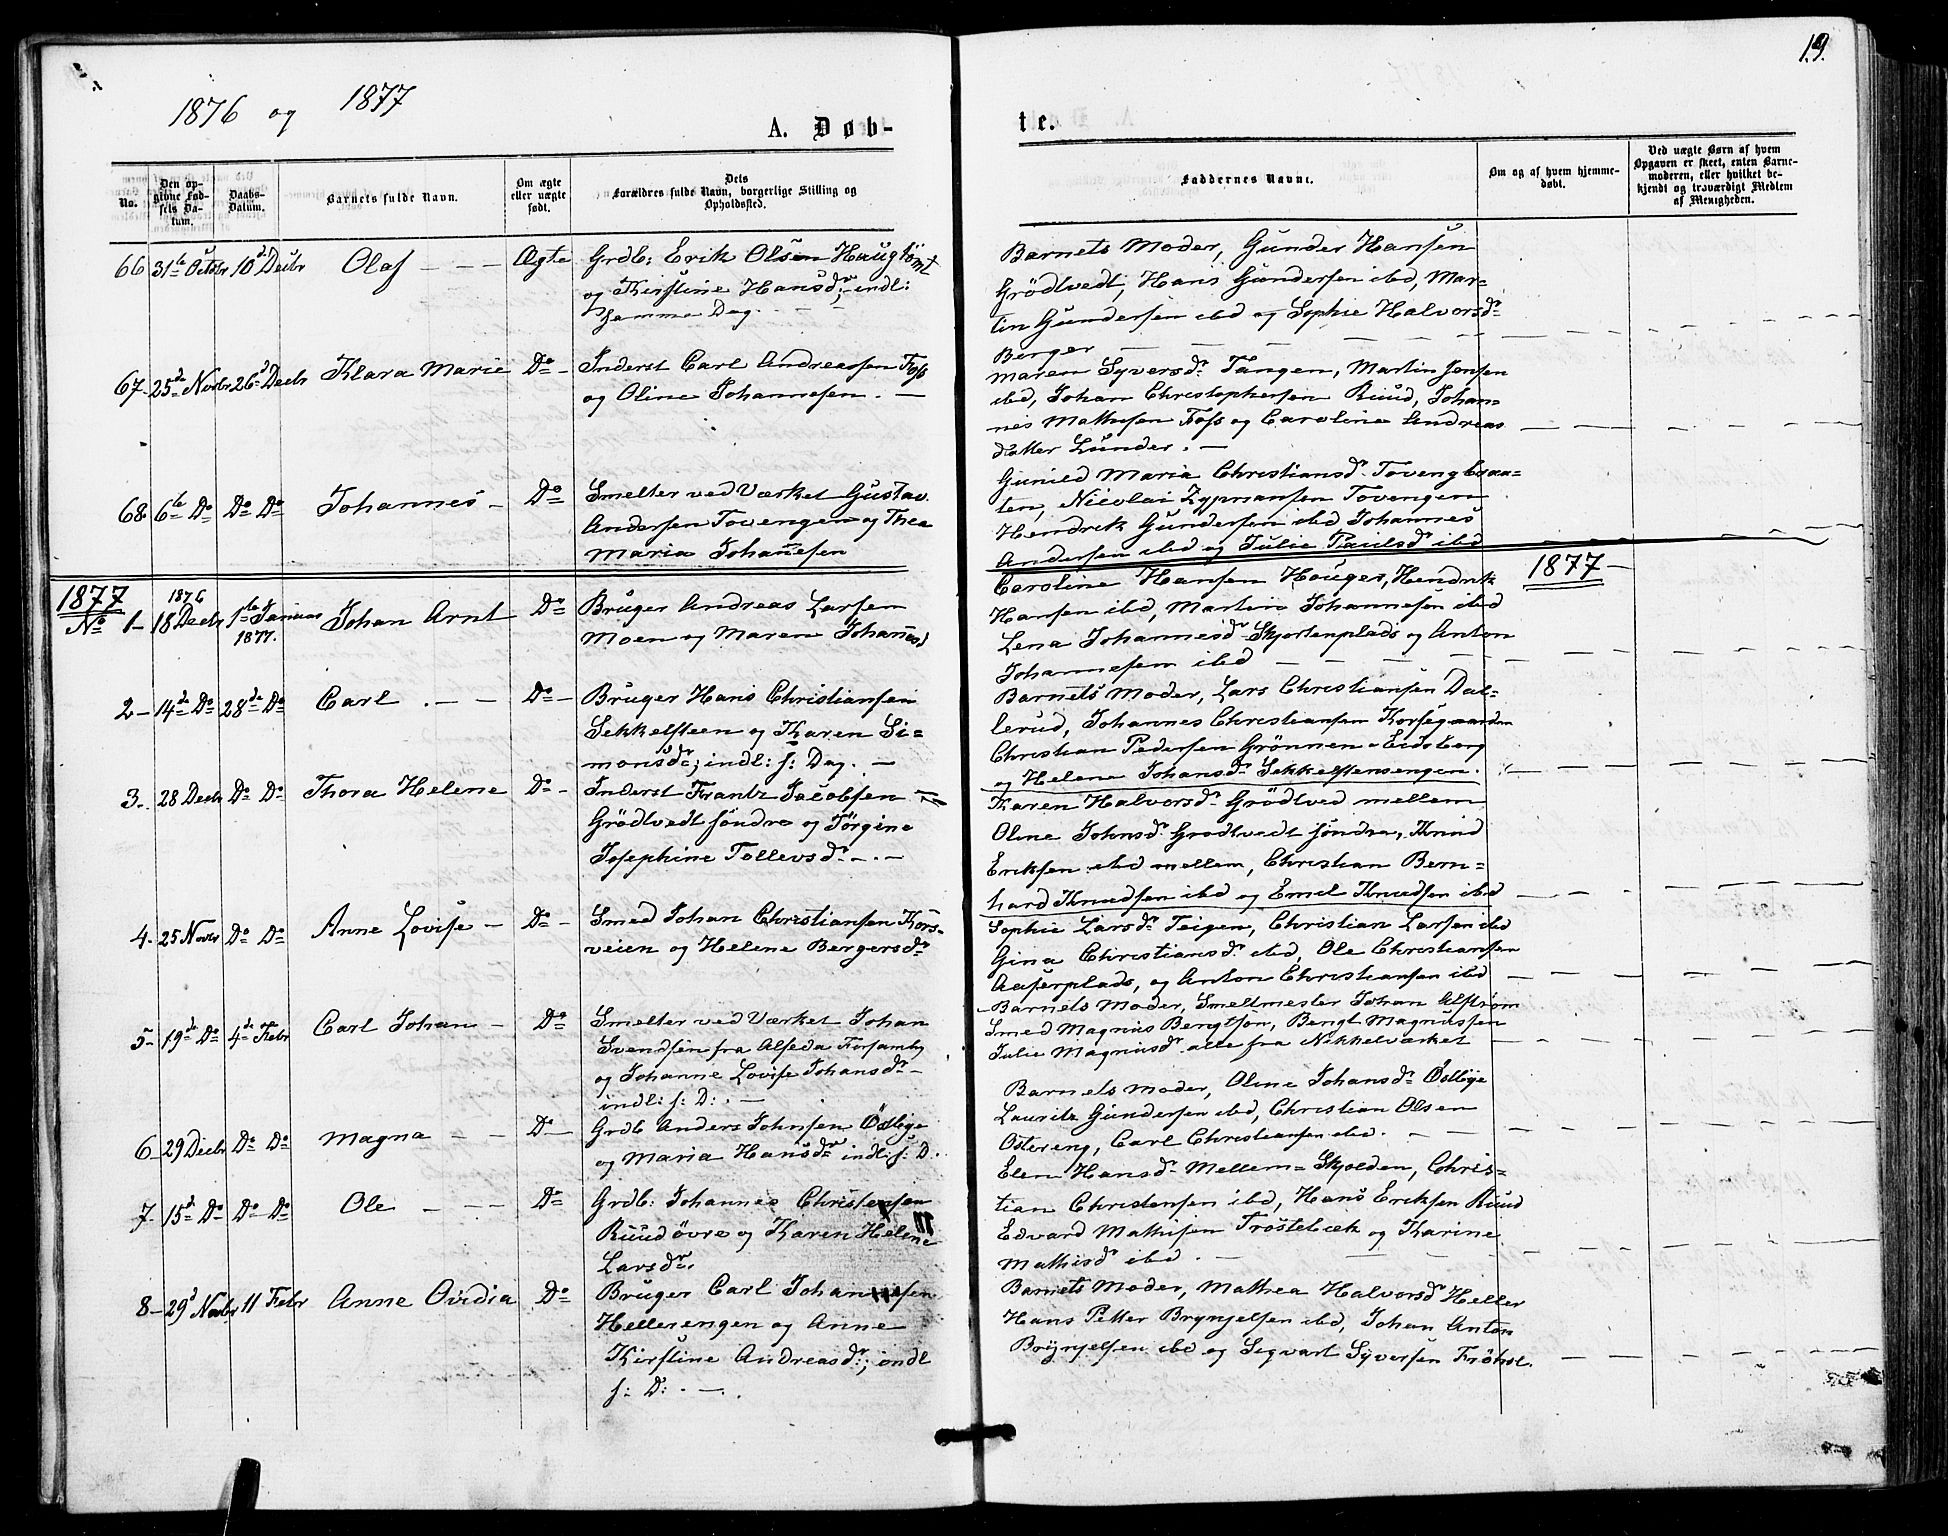 19.
1876 og 1877
A. Døb-
te.
No.
Den opgivne Fødsels Datum.
Daabs-Datum.
Barnets fulde Navn.
Om ægte eller uægte født.
Dets Forældres fulde Navn, borgerlige Stilling og Opholdssted.
Faddernes Navne.
Om og af hvem hjemmedøbt.
Ved uægte Børn af hvem Opgaven er skeet, enten Barnemoderen, eller hvilket bekjendt og troværdigt Medlem af Menigheden.
66 31te Octobr 10de Decbr Olaf – – – Ægte Grdb: Erik Olsen Haugtomt
og Kirstine Hansdr; indl:
samme Dag.
Barnets Moder, Gunder Hansen
Grödtvedt, Hans Gundersen ibd, Mar=
tin Gundersen ibd og Sophie Halvorsdr
Berger
67- 25de Novbr 26de Decbr Klara Marie Do – Inderst Carl Andreassen Foss
og Oline Johannesen. –
Maren Syversdr Tangen, Martin Jensen
ibd, Johan Christophersen Ruud, Johan=
nes Mathisen Foss og Caroline Andreas
datter Lunder. –
68 6te Do Do Do Johannes – Do Smelter ved Værket Gustav
Andersen Tovengen og Thea
Maria Johannesen
Gunild Maria Christiansdr Tovengbraa=
ten, Nicolai Tovengen
Hendrik Gundersen ibd Johannes
Andersen ibd og Julie Paulsdr ibd
1877
1877 –
No 1- 1876 18 Decbr 1ste Januar 1877. Johan Arnt Do Bruger Andreas Larsen
Moen og Maren Johannesd
Caroline Hansen Houger, Hendrik
Hansen ibd, Martine Johannesen ibd
Lena Johannesdr Skjortenplads og Anton
Johannesen ibd
2 – 14de Do 28de Do Carl . – – Do – Bruger Hans Christiansen
Sekkelsteen og Karen Si=
monsdr; indl: s: Dag. –
Barnets Moder, Lars Christiansen Dal=
lerud, Johannes Christiansen Korsegaarden
Christian Pedersen Grönnen = Eidsberg
og Helene Johansdr Sekkelstensengen.
3. 28 Decbr Do Do Thora Helene Do – Inderst Frantz Jacobsen
Grödtvedt söndre og Jörgine
Josephine Tollevsdr – . –
Karen Halvorsdr Grödtved mellem
Oline Johnsdr Grodtvedt söndre, Knud
Eriksen ibd mellem, Christian Bern=
hard Knudsen ibd og Emil Knudsen ibd
4. 25 Novbr Do Do Anne Lovise – Do – Smed Johan Christiansen Kors-
veien og Helene Bergersdr
Sophie Larsdr Teigen, Christian Larsen ibd
Gina Christiansdr ibd, Ole Christiansen
Aaserplads, og Anton Christiansen ibd
5- 19de Do 4de Febr Carl Johan – Do Smelter ved Værket Johan
Svendsen fra Alseda Forsamby
og Johanne Lovise Johansdr –
indl: s: D: . –
Barnets Moder, Smeltmester Johan Alström
Smed Magnus Bengtson, Bengt Magnussen
Julie Magnusdr alle fra Nikkelværket
6- 29 Decbr Do Do Magna – – Do – Grdb Anders Johnsen Östbye
og Maria Hansdr indl: s: D.
Barnets Moder, Oline Johansdr Östbye
Lauritz Gundersen ibd, Christian Olsen
Ostereng, Carl Christiansen ibd.
7- 15de Do Do Do Ole – – – Do Grdb: Johannes Christensen
Ruud övre og Karen Helene
Larsdr.
Elen Hansdr Mellem = Skjolden, Chris=
tian Christensen ibd, Hans Eriksen Ruud
Edvard Mathisen Trostebæk og Karine
Mathisdr ibd. –
8- 29de Novbr 11 Febr Anne Ovidia Do Bruger Carl Johannesen
Hellerengen og Anne
Kirstine Andreasdr; indl
s: D: . – .
Barnets Moder, Mathea Halvorsdr Heller
Hans Petter Brynjelsen ibd, Johan Anton
Brynjelsen ibd og Sigvart Syversen Fröhol.